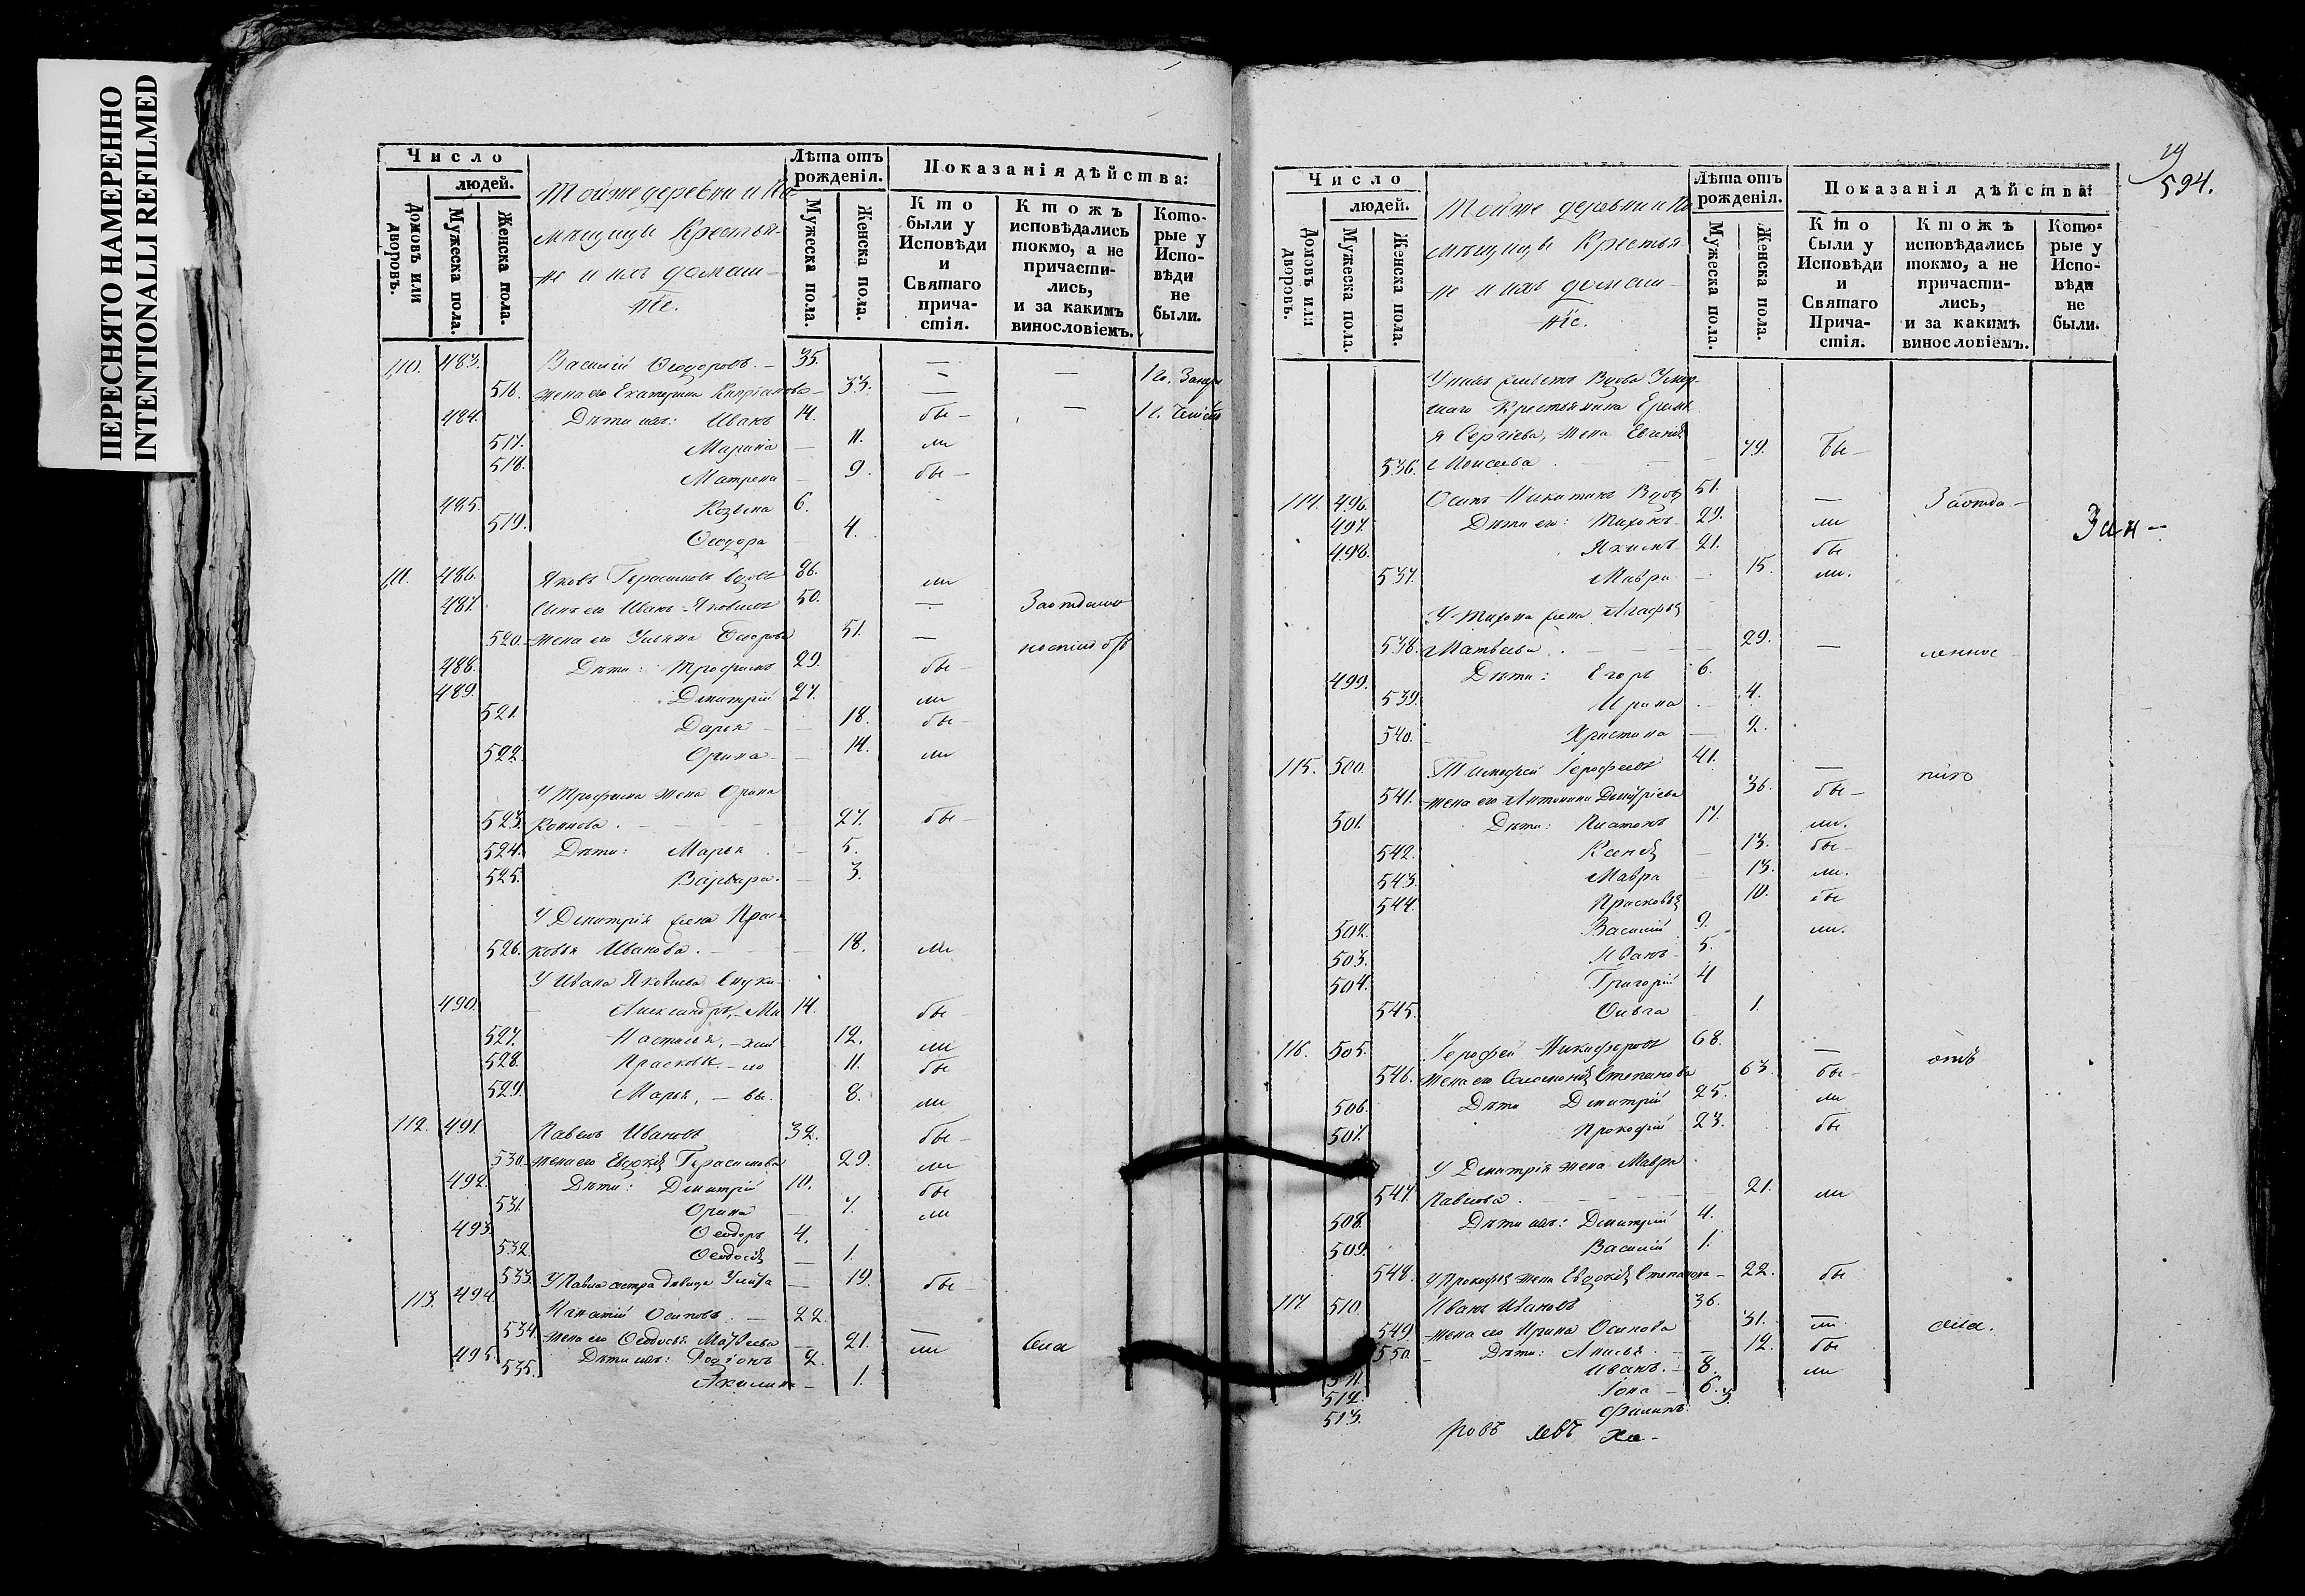 ПЕРЕСНЯТО НАМЕРЕННО
INTENTIONALLI REFILMED
Число
людей.
Домовъ или дворовъ.
Мужеска пола.
Женска пола.
Тойже деревни и По-
мѣщицы Крестья-
не и ихъ домаш-
ніе.
Лѣта отъ рожденія.
Мужеска пола.
Женска пола.
Показанія дѣйства:
Кто были у Исповѣди и Святаго причастія.
Ктожъ исповѣдались токмо, а не причастились, и за какимъ винословіемъ.
Которые у Исповѣди не были.
110. 483. Василій Ѳеодоровъ. 35. —
516. жена его Екатерина Кипріанова 33. —
484. Дѣти ихъ: Иванъ 14. бы
517. Марина 11. ли
518. Матрена 9. бы
485. Козьма 6.
519. Ѳеодора 4.
111. 486. Яковъ Герасимовъ вдовъ 86. ли
487. Сынъ его Иванъ Яковлевъ 50. —
520. жена его Ульяна Ѳеодорова 51. —
488. Дѣти: Трофимъ 29. бы
489. Димитрій 27. ли
521. Дарья 18. бы
522. Орина 14. ли
У Трофима жена Орина
523. Конова. 27. бы
524. Дѣти: Марья 5.
525. Варвара. 3.
У Димитрія жена Прас-
526. ковья Иванова. 18. ли
У Ивана Яковлева внуки
490. Александръ, Ми 14. бы
527. Настасья, хай 12. ли
528. Прасковья, ло 11. бы
529. Марья, вы 8. ли
112. 491. Павелъ Ивановъ 32. бы
530. жена его Евдокія Герасимова 29. ли
492. Дѣти: Димитрій 10. бы
531. Орина 7. ли
493. Ѳеодоръ 4.
532. Ѳеодосія 1.
533. У Павла сестра дѣвица Улита 19. бы
113. 494. Игнатій Осиповъ. 22. —
534. жена его Ѳеодосья Матвеева 21. ли
495. Дѣти ихъ: Родіонъ 2.
535. Акилина 1.
594.
Число
людей.
Домовъ или дворовъ.
Мужеска пола.
Женска пола.
Тойже деревни и По
мѣщицы Крестья
не и ихъ домаш-
ніе.
Лѣта отъ рожденія.
Мужеска пола.
Женска пола.
Показанія дѣйства:
Кто были у Исповѣди и Святаго Причастія.
Ктожъ исповѣдались токмо, а не причастились, и за какимъ винословіемъ.
Которые у Исповѣди не были.
вдова Умер-
шаго Крестьянина
Сергіева, жена Евгенія
536. Моисеева 79. бы
114. 496. Осипъ Никитинъ Вдовъ 51. —
497. Дѣти его: Тихонъ 29. ли
498. Якимъ 21. бы
537. Мавра 15. ли.
У Тихона жена Агафья
538. Матвеева. 29. —
499. Дѣти: Егоръ 6.
539. Ирина 4.
540. Христина 2.
115. 500. Тимофей Герофеевъ 41. —
541. жена его Антонина Димитріева 36. бы
501. Дѣти: Платонъ 17. ли.
542. Ксенія 13. бы
543. Мавра 13. ли.
544. Прасковья 10. бы
502. Василій 9. ли.
503. Иванъ 5.
504. Григорій 4
545. Ольга 1.
116. 505. Герофей Никифоровъ 68. —
546. жена его Соломонія Степанова 63. бы
506. Дѣти Димитрій 25. ли
507. Прокофій 23. бы
У Димитрія жена Мавра
547. Павлова. 21. ли
508. Дѣти ихъ: Димитрій 4.
509. Василій 1.
548. У Прокофья жена Евдокія Степанова 22. бы
117 510. Иванъ Ивановъ 36. —
549. жена его Ирина Осипова 31. ли
550. Дѣти: Анисья 12. бы
511. Иванъ. 8. ли
512. Іона 6.
513. Филипъ 3.
ровъ левъ